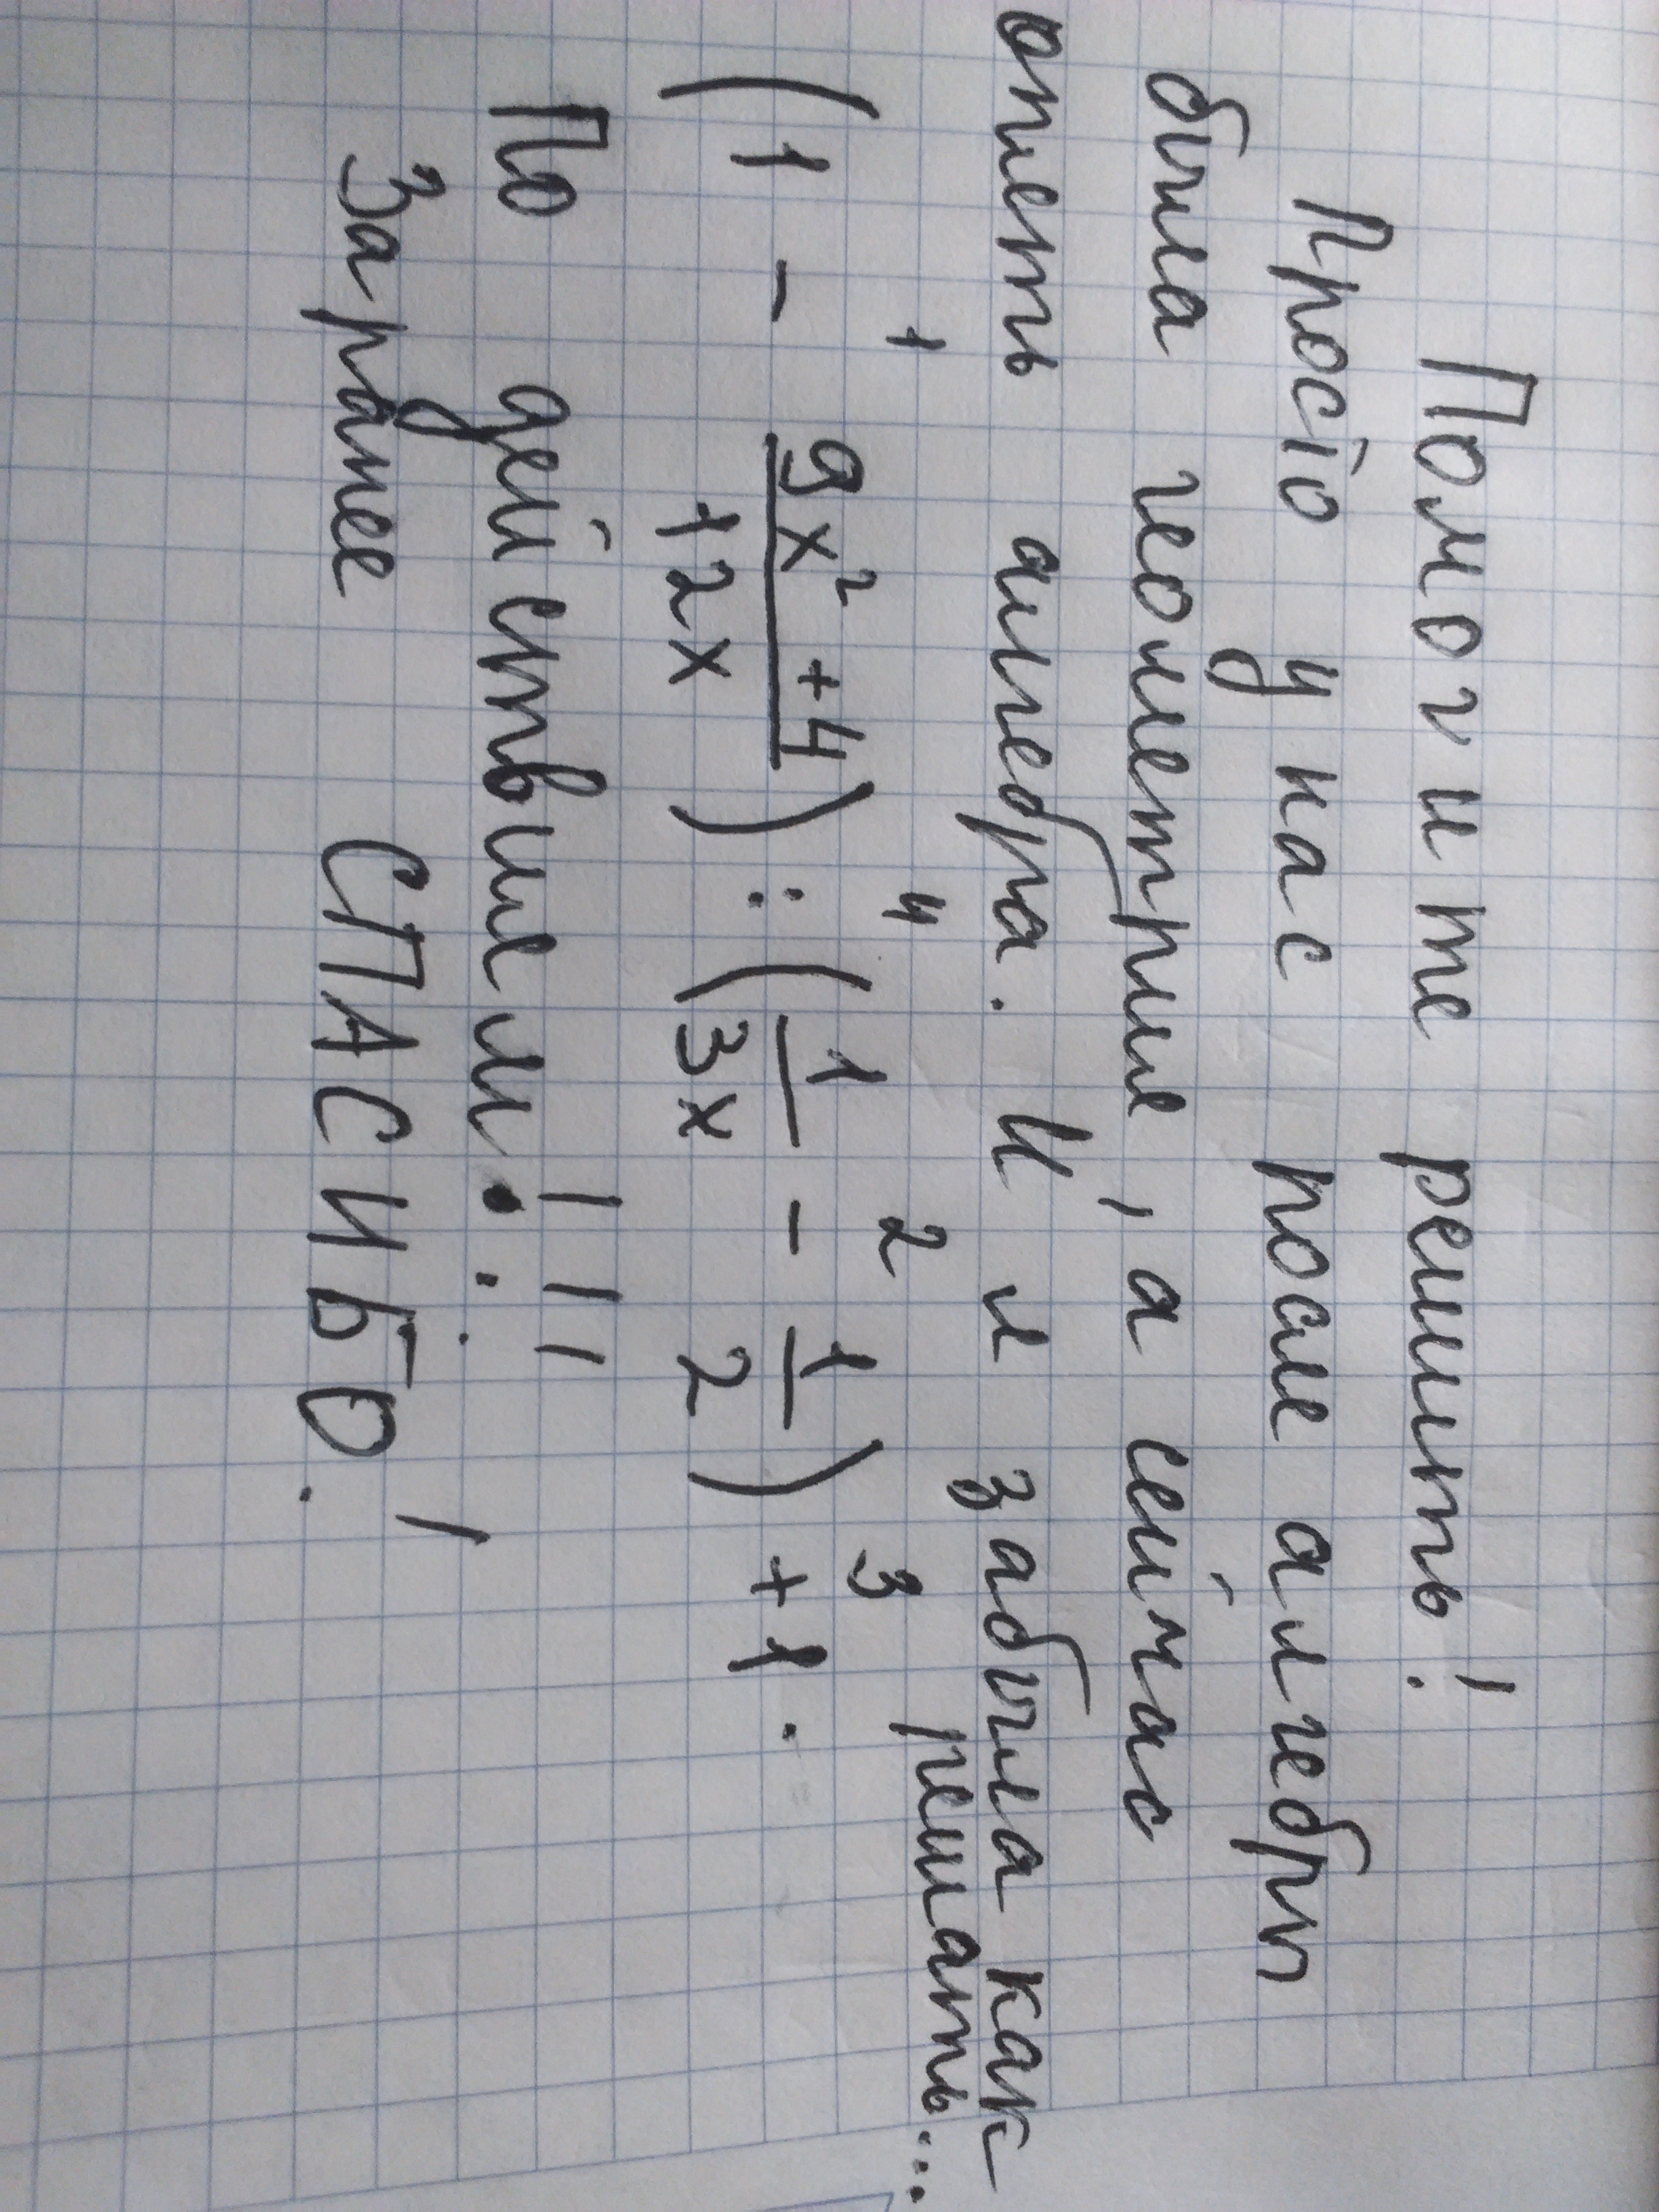 Помогите решить!
Просто у нас после алгебры
была геометрия, а сейчас
опять алгебра. И я забыла как
решать...
1 4 2 3
(1 - 9x²+4/12x) : (1/3x - 1/2) + 1.
По действиям!!!
Заранее СПАСИБО!